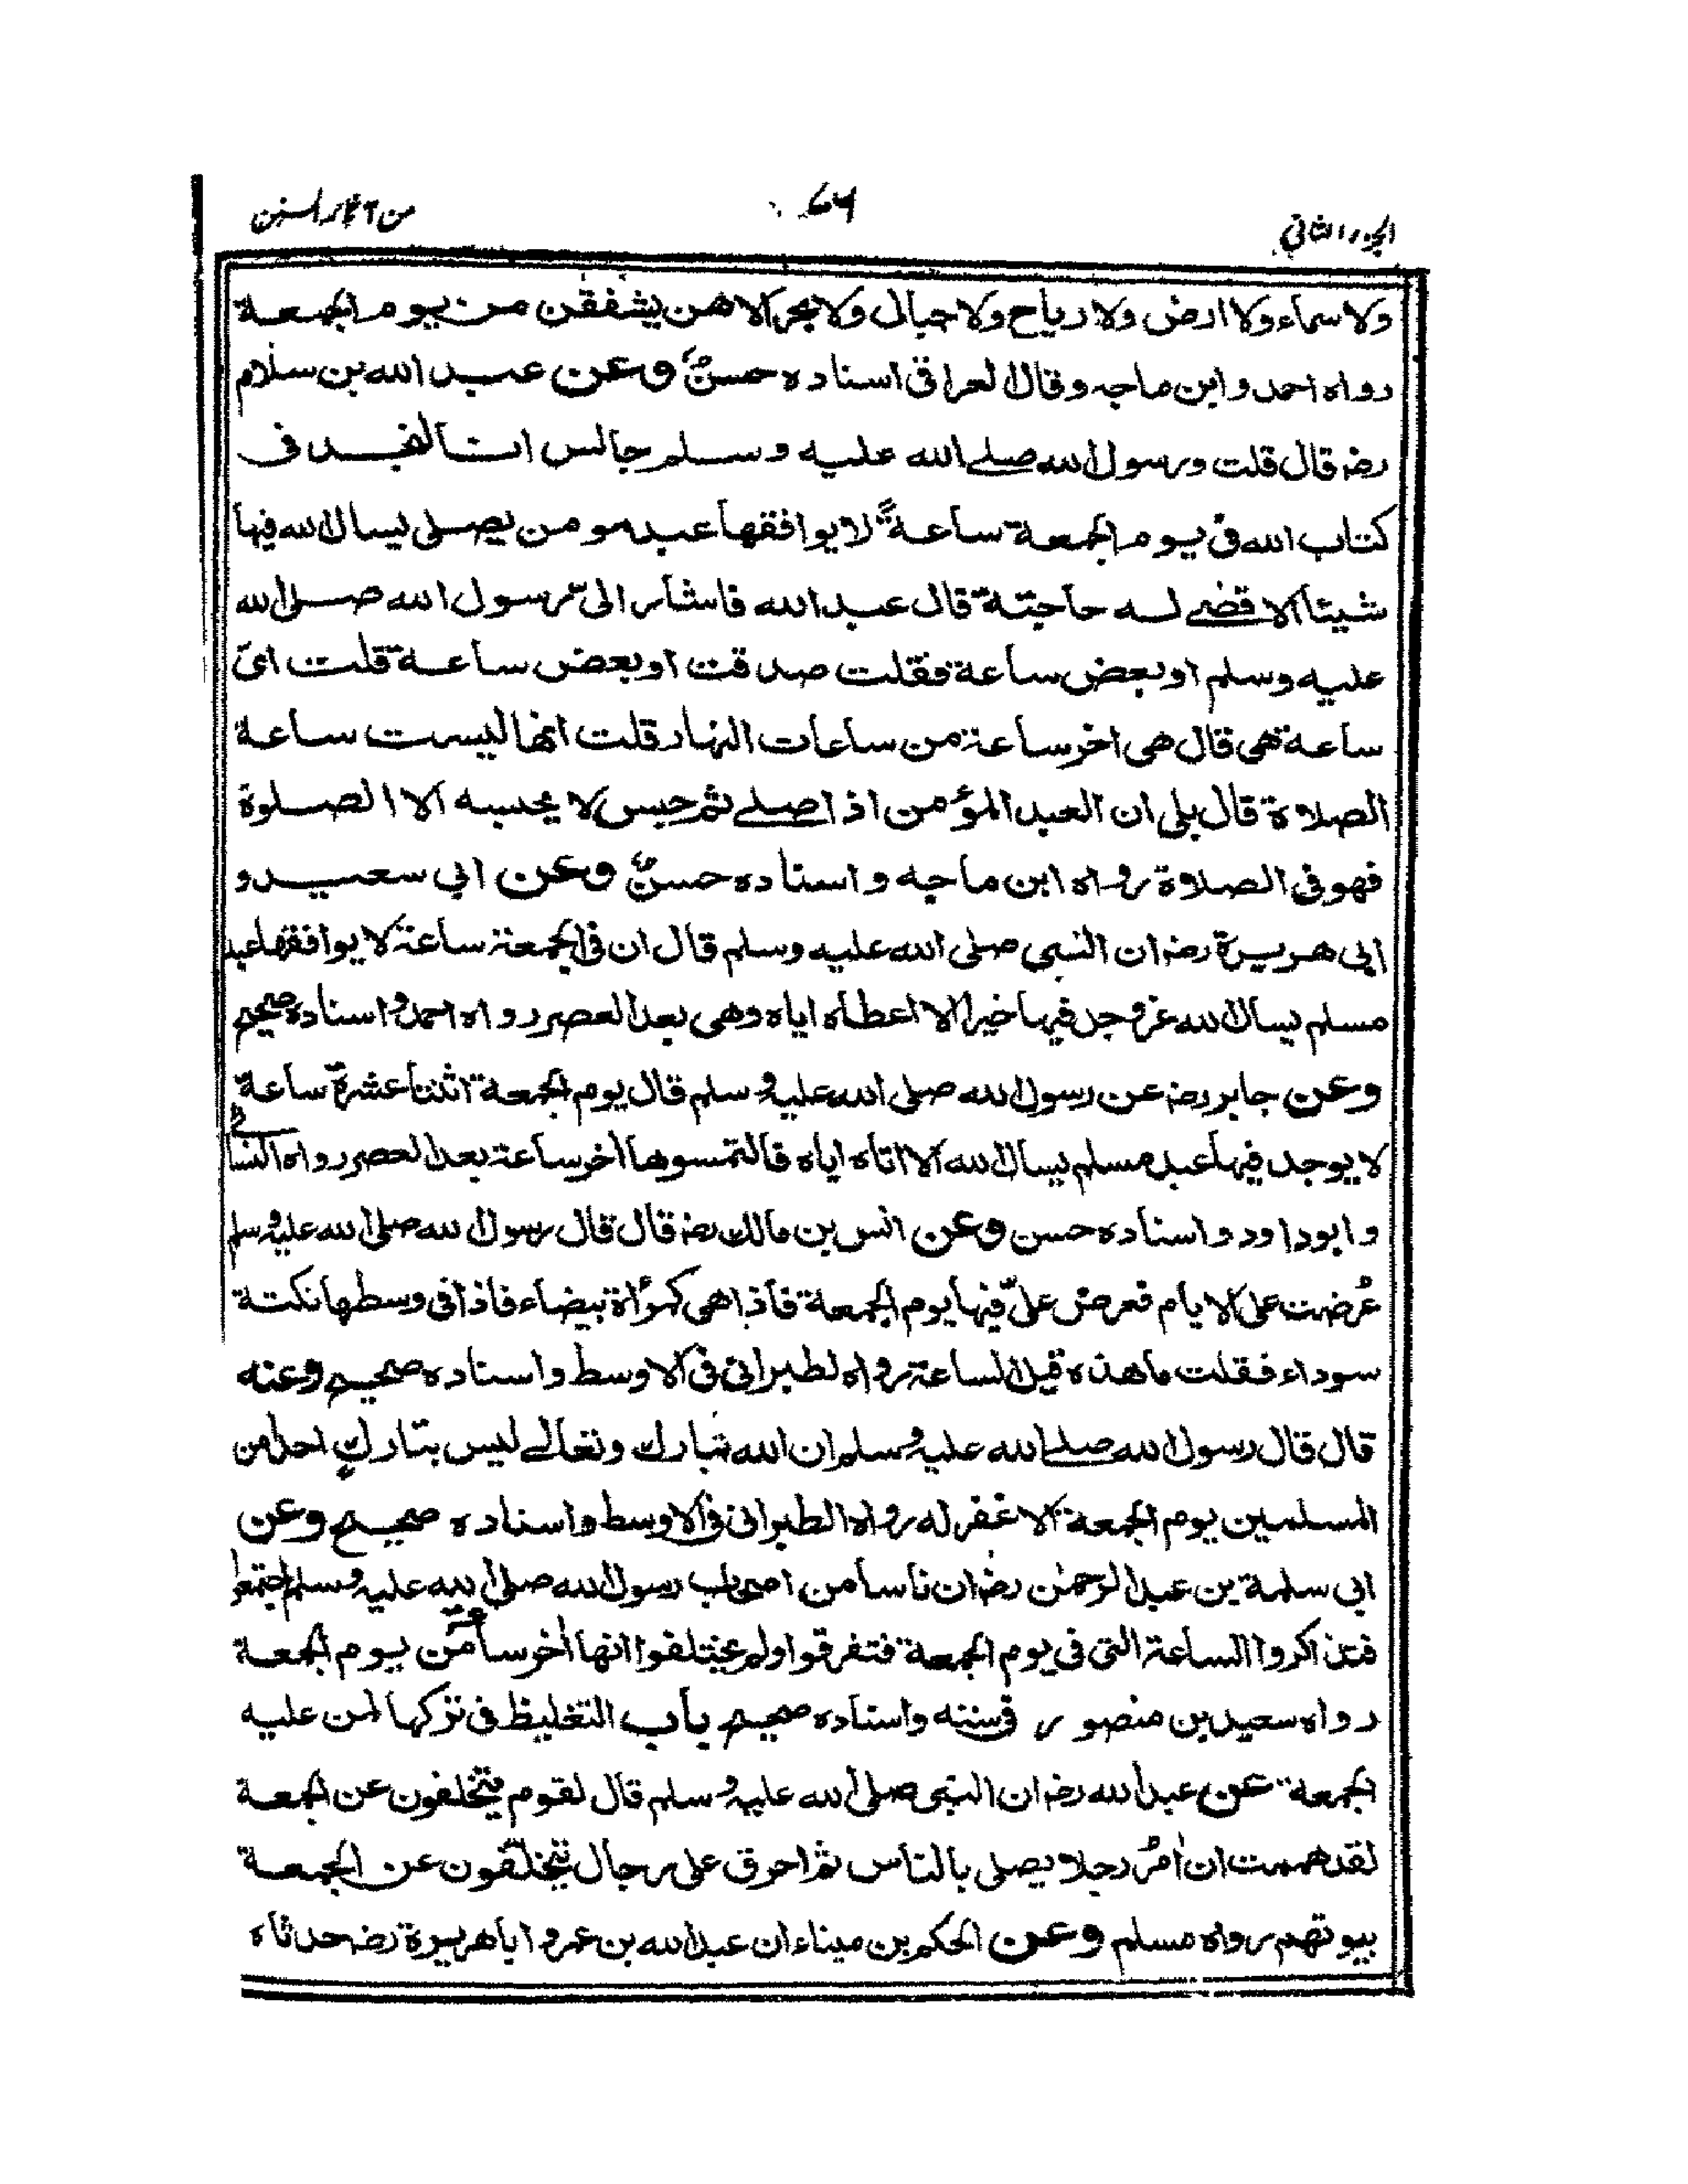 الجزء الثاني
٦٧
من آثار السنن
ولا سماء ولا ارض ولا رياح ولا جبال ولا بحر الا هن يشفقن من يوم الجمعة
رواه احمد وابن ماجه وقال العراقي اسناده حسنٌ وعن عبد الله بن سلام
رضـ قال قلت ورسول الله صلے الله عليه وسلم جالس انا لنجد فى
كتاب الله فى يوم الجمعة ساعةً لا يوافقها عبد مومن يصلى يسال الله فيها
شيئا الا قضے له حاجته قال عبد الله فاشار الىّ رسول الله صلى الله
عليه وسلم او بعض ساعة فقلت صدقت او بعض ساعة قلت اىّ
ساعة هى قال هى اخر ساعة من ساعات النهار قلت انها ليست ساعة
الصلاة قال بلى ان العبد المؤمن اذا صلے ثم جلس لا يحبسه الا الصلوة
فهو فى الصلاة رواه ابن ماجه واسناده حسنٌ وعن ابي سعيد و
ابى هريرة رضـ ان النبى صلى الله عليه وسلم قال ان فى الجمعة ساعة لا يوافقها عبد
مسلم يسال الله عز وجل فيها خيرا الا اعطاه اياه وهى بعد العصر رواه احمد واسناده صحيح
وعن جابر رضـ عن رسول الله صلى الله عليه وسلم قال يوم الجمعة اثنتا عشرة ساعة
لا يوجد فيها عبد مسلم يسال الله الا اتاه اياه فالتمسوها اخر ساعة بعد العصر رواه النسائى
وابوداود واسناده حسن وعن انس بن مالك رضـ قال قال رسول الله صلى الله عليه وسلم
عُرضت على الايام فعرض علىّ فيها يوم الجمعة فاذا هى كمرأة بيضاء فاذا فى وسطها نكتة
سوداء فقلت ما هذه قيل الساعة رواه الطبرانى فى الاوسط واسناده صحيح وعنه
قال قال رسول الله صلے الله عليه وسلم ان الله تبارك وتعالے ليس بتاركٍ احدا من
المسلمين يوم الجمعة الا غفر له رواه الطبرانى فى الاوسط واسناده صحيح وعن
ابي سلمة بن عبد الرحمٰن رضـ ان ناسا من اصحاب رسول الله صلى الله عليه وسلم اجتمعوا
فتذاكروا الساعة التى فى يوم الجمعة فتفرقوا ولم يختلفوا انها اخر ساعة من يوم الجمعة
رواه سعيد بن منصور فى سننه واسناده صحيح باب التغليظ فى تركها لمن عليه
الجمعة عن عبد الله رضـ ان النبى صلى الله عليه وسلم قال لقوم يتخلفون عن الجمعة
لقد هممت ان اٰمُر رجلا يصلى بالناس ثم احرق على رجال يتخلفون عن الجمعة
بيوتهم رواه مسلم وعن الحكم بن ميناء ان عبد الله بن عمرو ابا هريرة رضـ حدثاه